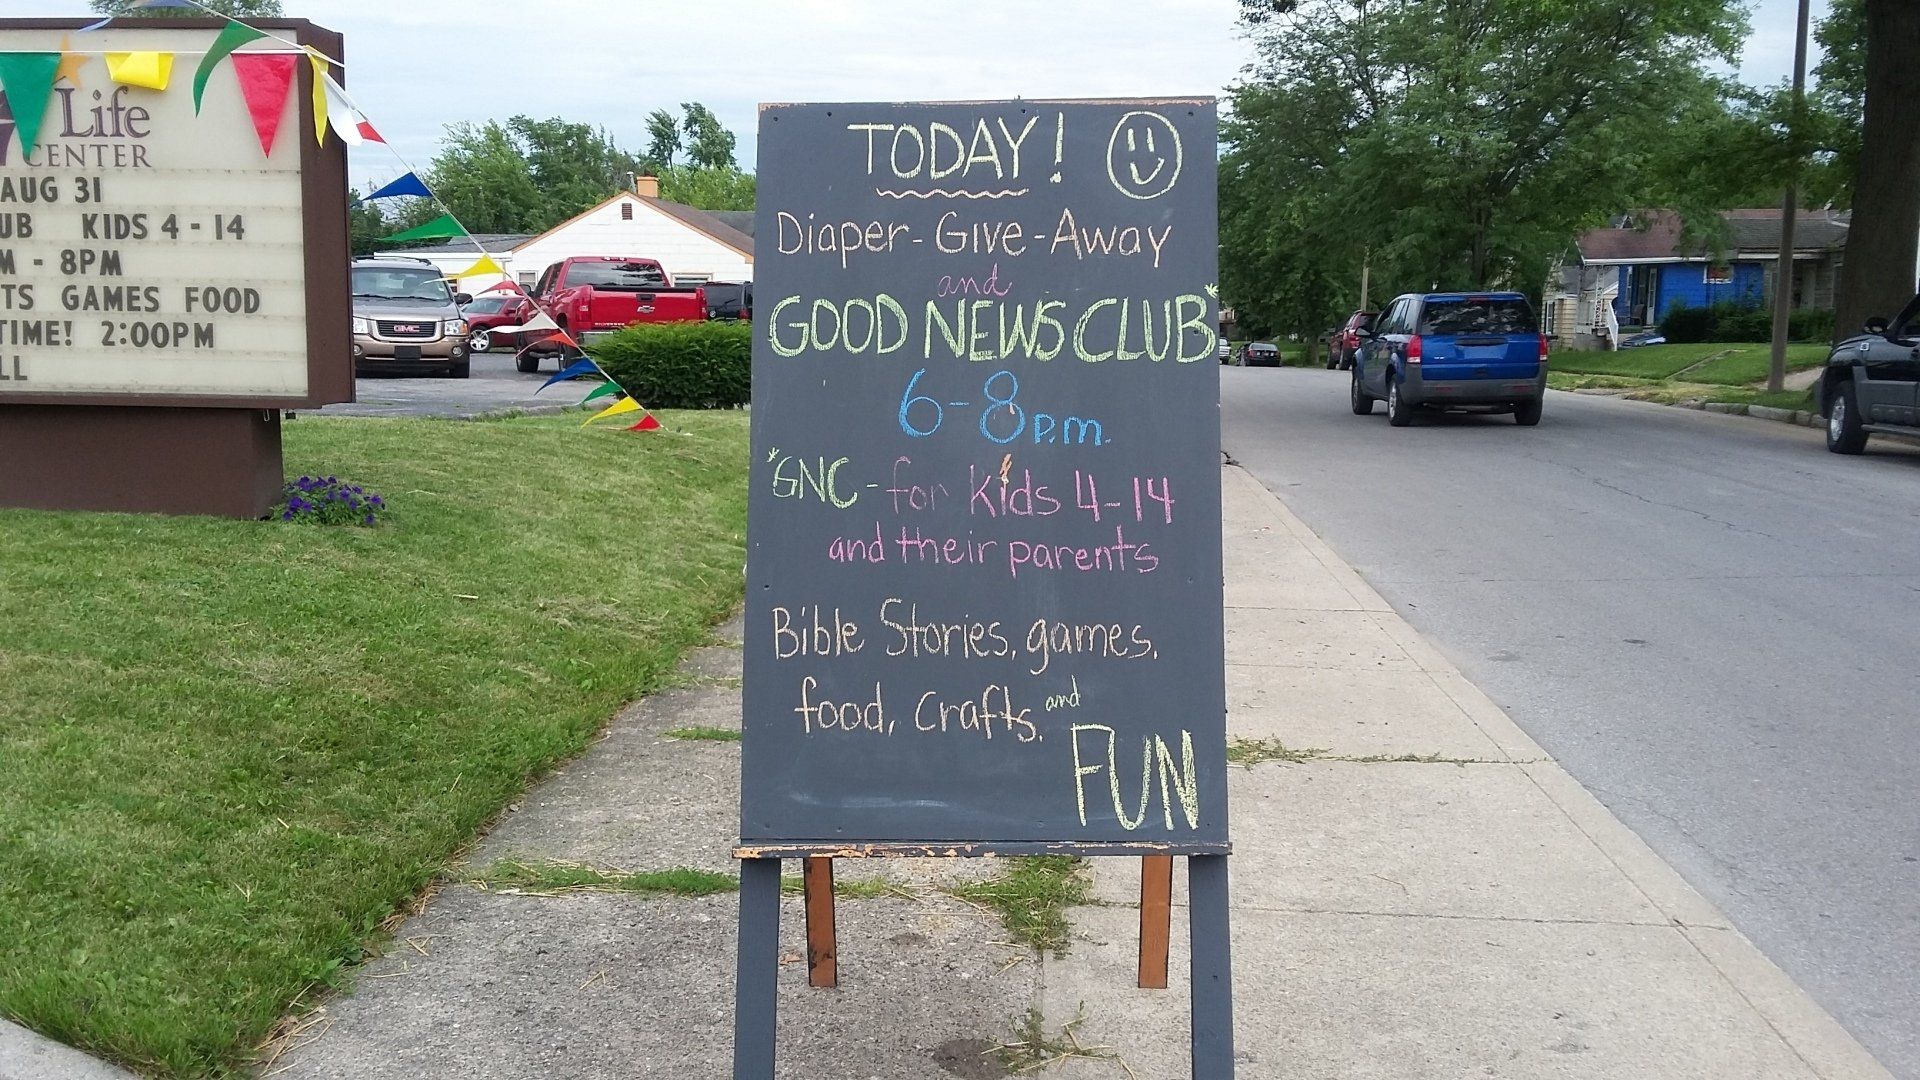 Life
CENTER
AUG 31
UB KIDS 4 - 14
M - 8PM
TS GAMES FOOD
TIME! 2:00PM
LL
TODAY!
Diaper-Give-Away
and
GOOD NEWS CLUB*
6-8 p.m.
*GNC - for kids 4-14
and their parents
Bible Stories, games,
food, crafts, and
FUN
GMC